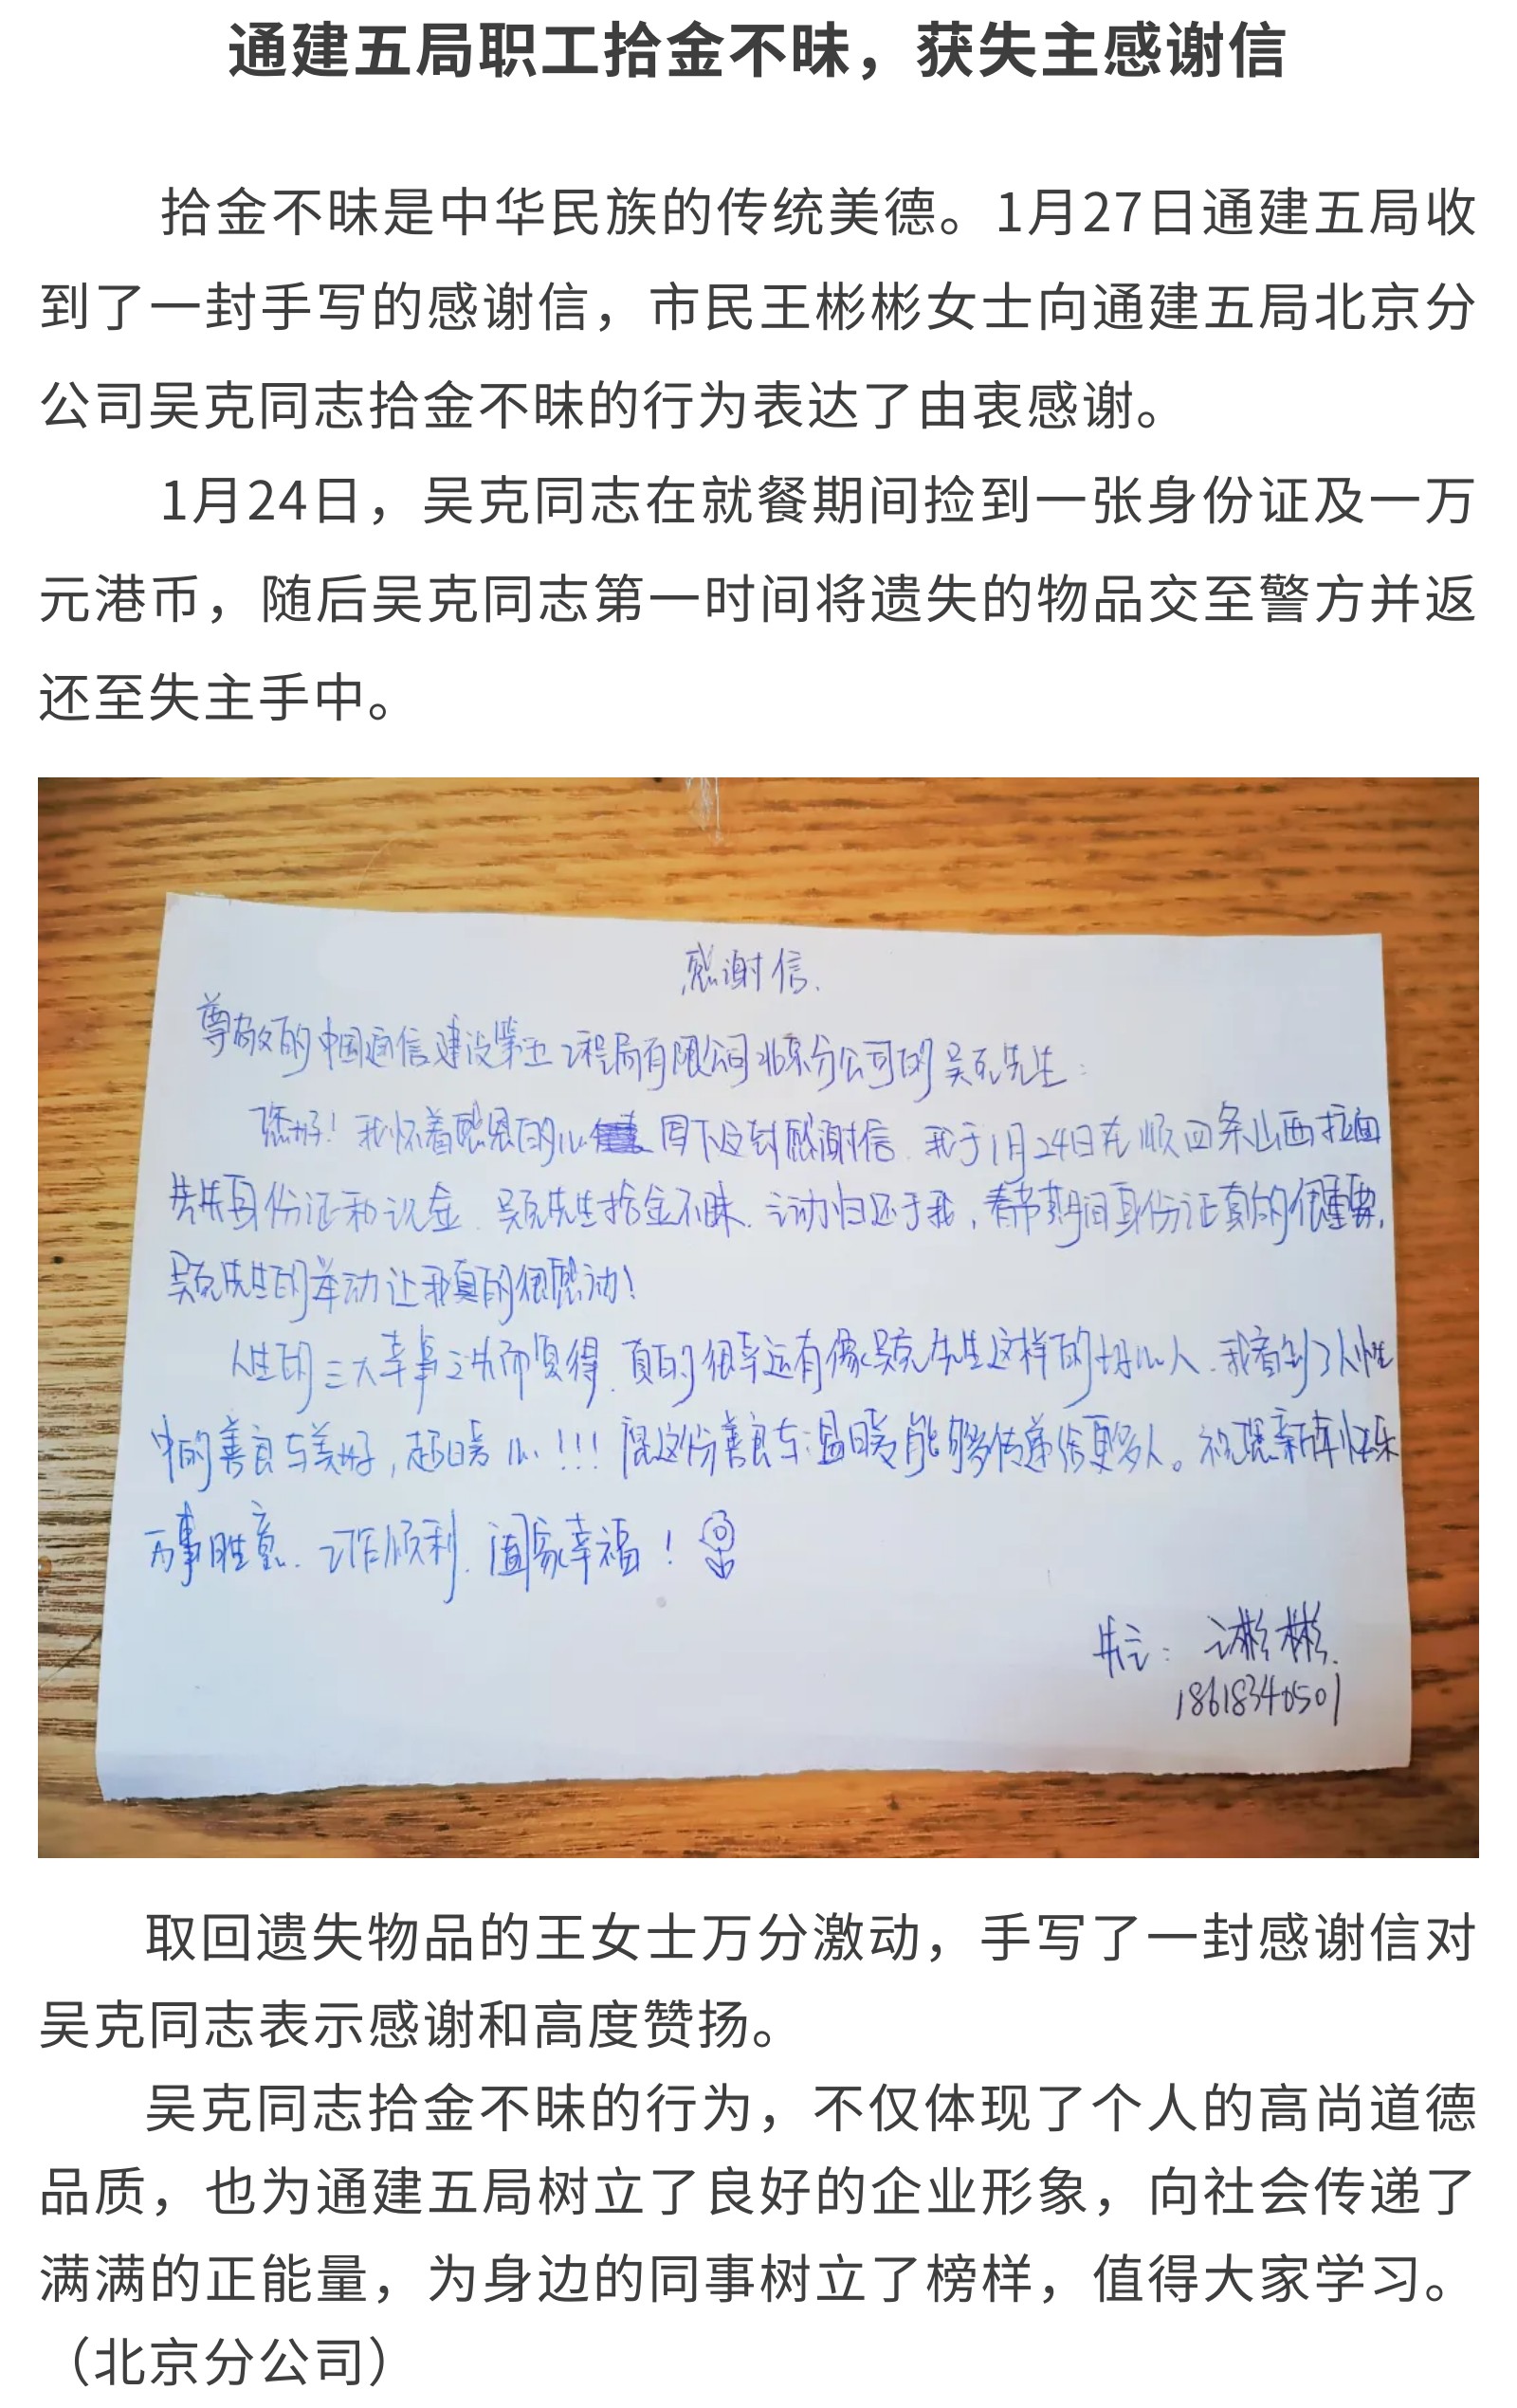 通建五局职工拾金不昧，获失主感谢信
拾金不昧是中华民族的传统美德。1月27日通建五局收
到了一封手写的感谢信，市民王彬彬女士向通建五局北京分
公司吴克同志拾金不昧的行为表达了由衷感谢。
1月24日，吴克同志在就餐期间捡到一张身份证及一万
元港币，随后吴克同志第一时间将遗失的物品交至警方并返
还至失主手中。
感谢信.
尊敬的中国通信建设第五工程局有限公司北京分公司的吴克先生：
您好！我怀着感恩的心 写下这封感谢信.我于1月24日在顺四条山西拉面
丢失身份证和现金.吴克先生拾金不昧.主动归还于我，春节期间身份证真的很重要，
吴克先生的举动让我真的很感动！
人生的三大幸事之失而复得.真的很幸运有像吴克先生这样的好心人.我看到了人性
中的善良与美好，超暖心!!!愿这份善良与温暖能够传递给更多人。祝您新年快乐
万事胜意.工作顺利.阖家幸福！
失主：王彬彬.
18618340501
取回遗失物品的王女士万分激动，手写了一封感谢信对
吴克同志表示感谢和高度赞扬。
吴克同志拾金不昧的行为，不仅体现了个人的高尚道德
品质，也为通建五局树立了良好的企业形象，向社会传递了
满满的正能量，为身边的同事树立了榜样，值得大家学习。
（北京分公司）